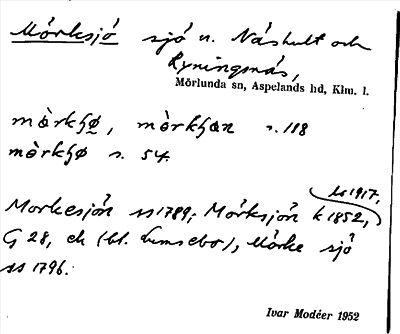 Mörksjö sjö n. Näshult och
Ryningsnäs,
Mörlunda sn, Aspelands hd, Klm. l.
mörkʃø, mörkʃøn s. 118
mörkʃø s. 54.
ss 1917,
Morkesjön ss 1789; Mörksjön k 1852,
G 28, ek (bl. Emsebo), Mörke sjö
ss 1796.
Ivar Modéer 1952